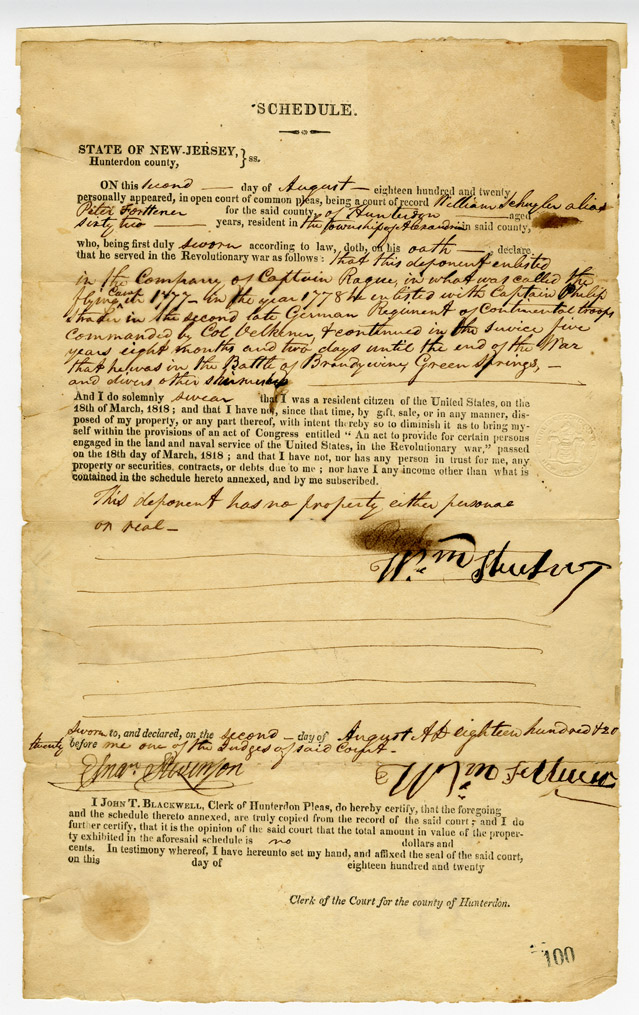 SCHEDULE.
STATE OF NEW-JERSEY,
Hunterdon county, } ss.
ON this second day of August eighteen hundred and twenty
personally appeared, in open court of common pleas, being a court of record William Schuyler alias
Peter for the said county of Hunterdon aged
sixty two years, resident in the township of Alexandria in said county,
who, being first duly sworn according to law, doth, on his oath declare
that he served in the Revolutionary war as follows: that this deponent enlisted
in the Company of Captain Rague, in what was called the
flying Camp in 1777 in the year 1778 he enlisted with Captain Philip
in the second late German Regiment of Continental troops
commanded by Col & continued in the service five
years eight months and two days until the end of the War
that he was in the Battle of Brandywine, Green Springs, –
and divers other
And I do solemnly swear that I was a resident citizen of the United States, on the
18th of March, 1818; and that I have not, since that time, by gift, sale, or in any manner, dis-
posed of my property, or any part thereof, with intent thereby so to diminish it as to bring my-
self within the provisions of an act of Congress entitled “ An act to provide for certain persons
engaged in the land and naval service of the United States, in the Revolutionary war,” passed
on the 18th day of March, 1818; and that I have not, nor has any person in trust for me, any
property or securities, contracts, or debts due to me; nor have I any income other than what is
contained in the schedule hereto annexed, and by me subscribed.
This deponent has no property either personal
or real –
Wm
Sworn to, and declared, on the second – day of August AD eighteen hundred & 20
twenty before me one of the Judges of said Court –
Wm
I JOHN T. BLACKWELL, Clerk of Hunterdon Pleas, do hereby certify, that the foregoing
and the schedule thereto annexed, are truly copied from the record of the said court; and I do
further certify, that it is the opinion of the said court that the total amount in value of the proper-
ty exhibited in the aforesaid schedule is no dollars and
cents. In testimony whereof, I have hereunto set my hand, and affixed the seal of the said court,
on this day of eighteen hundred and twenty
Clerk of the Court for the county of Hunterdon.
100